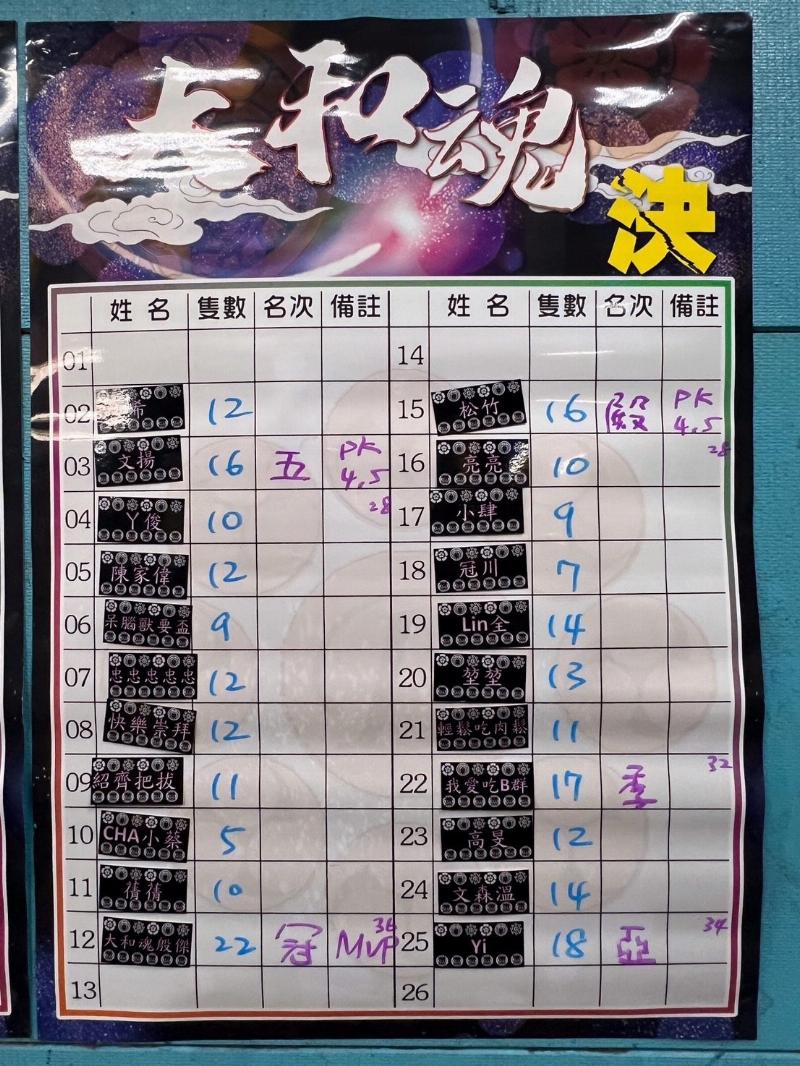 大和魂
決
姓名 隻數 名次 備註 姓名 隻數 名次 備註
01 14
02 希 12 15 松竹 16 殿 PK 4.5 28
03 文揚 16 五 PK 4.5 28 16 亮亮 10
04 丫俊 10 17 小肆 9
05 陳家偉 12 18 冠川 7
06 呆腦獸要盃 9 19 Lin全 14
07 忠忠忠忠忠 12 20 堃堃 13
08 快樂崇拜 12 21 輕鬆吃肉鬆 11
09 紹齊把拔 11 22 我愛吃B群 17 季 32
10 CHA小蔡 5 23 高旻 12
11 蒨蒨 10 24 文森溫 14
12 大和魂般傑 22 冠 MVP 36 25 Yi 18 亞 34
13 26